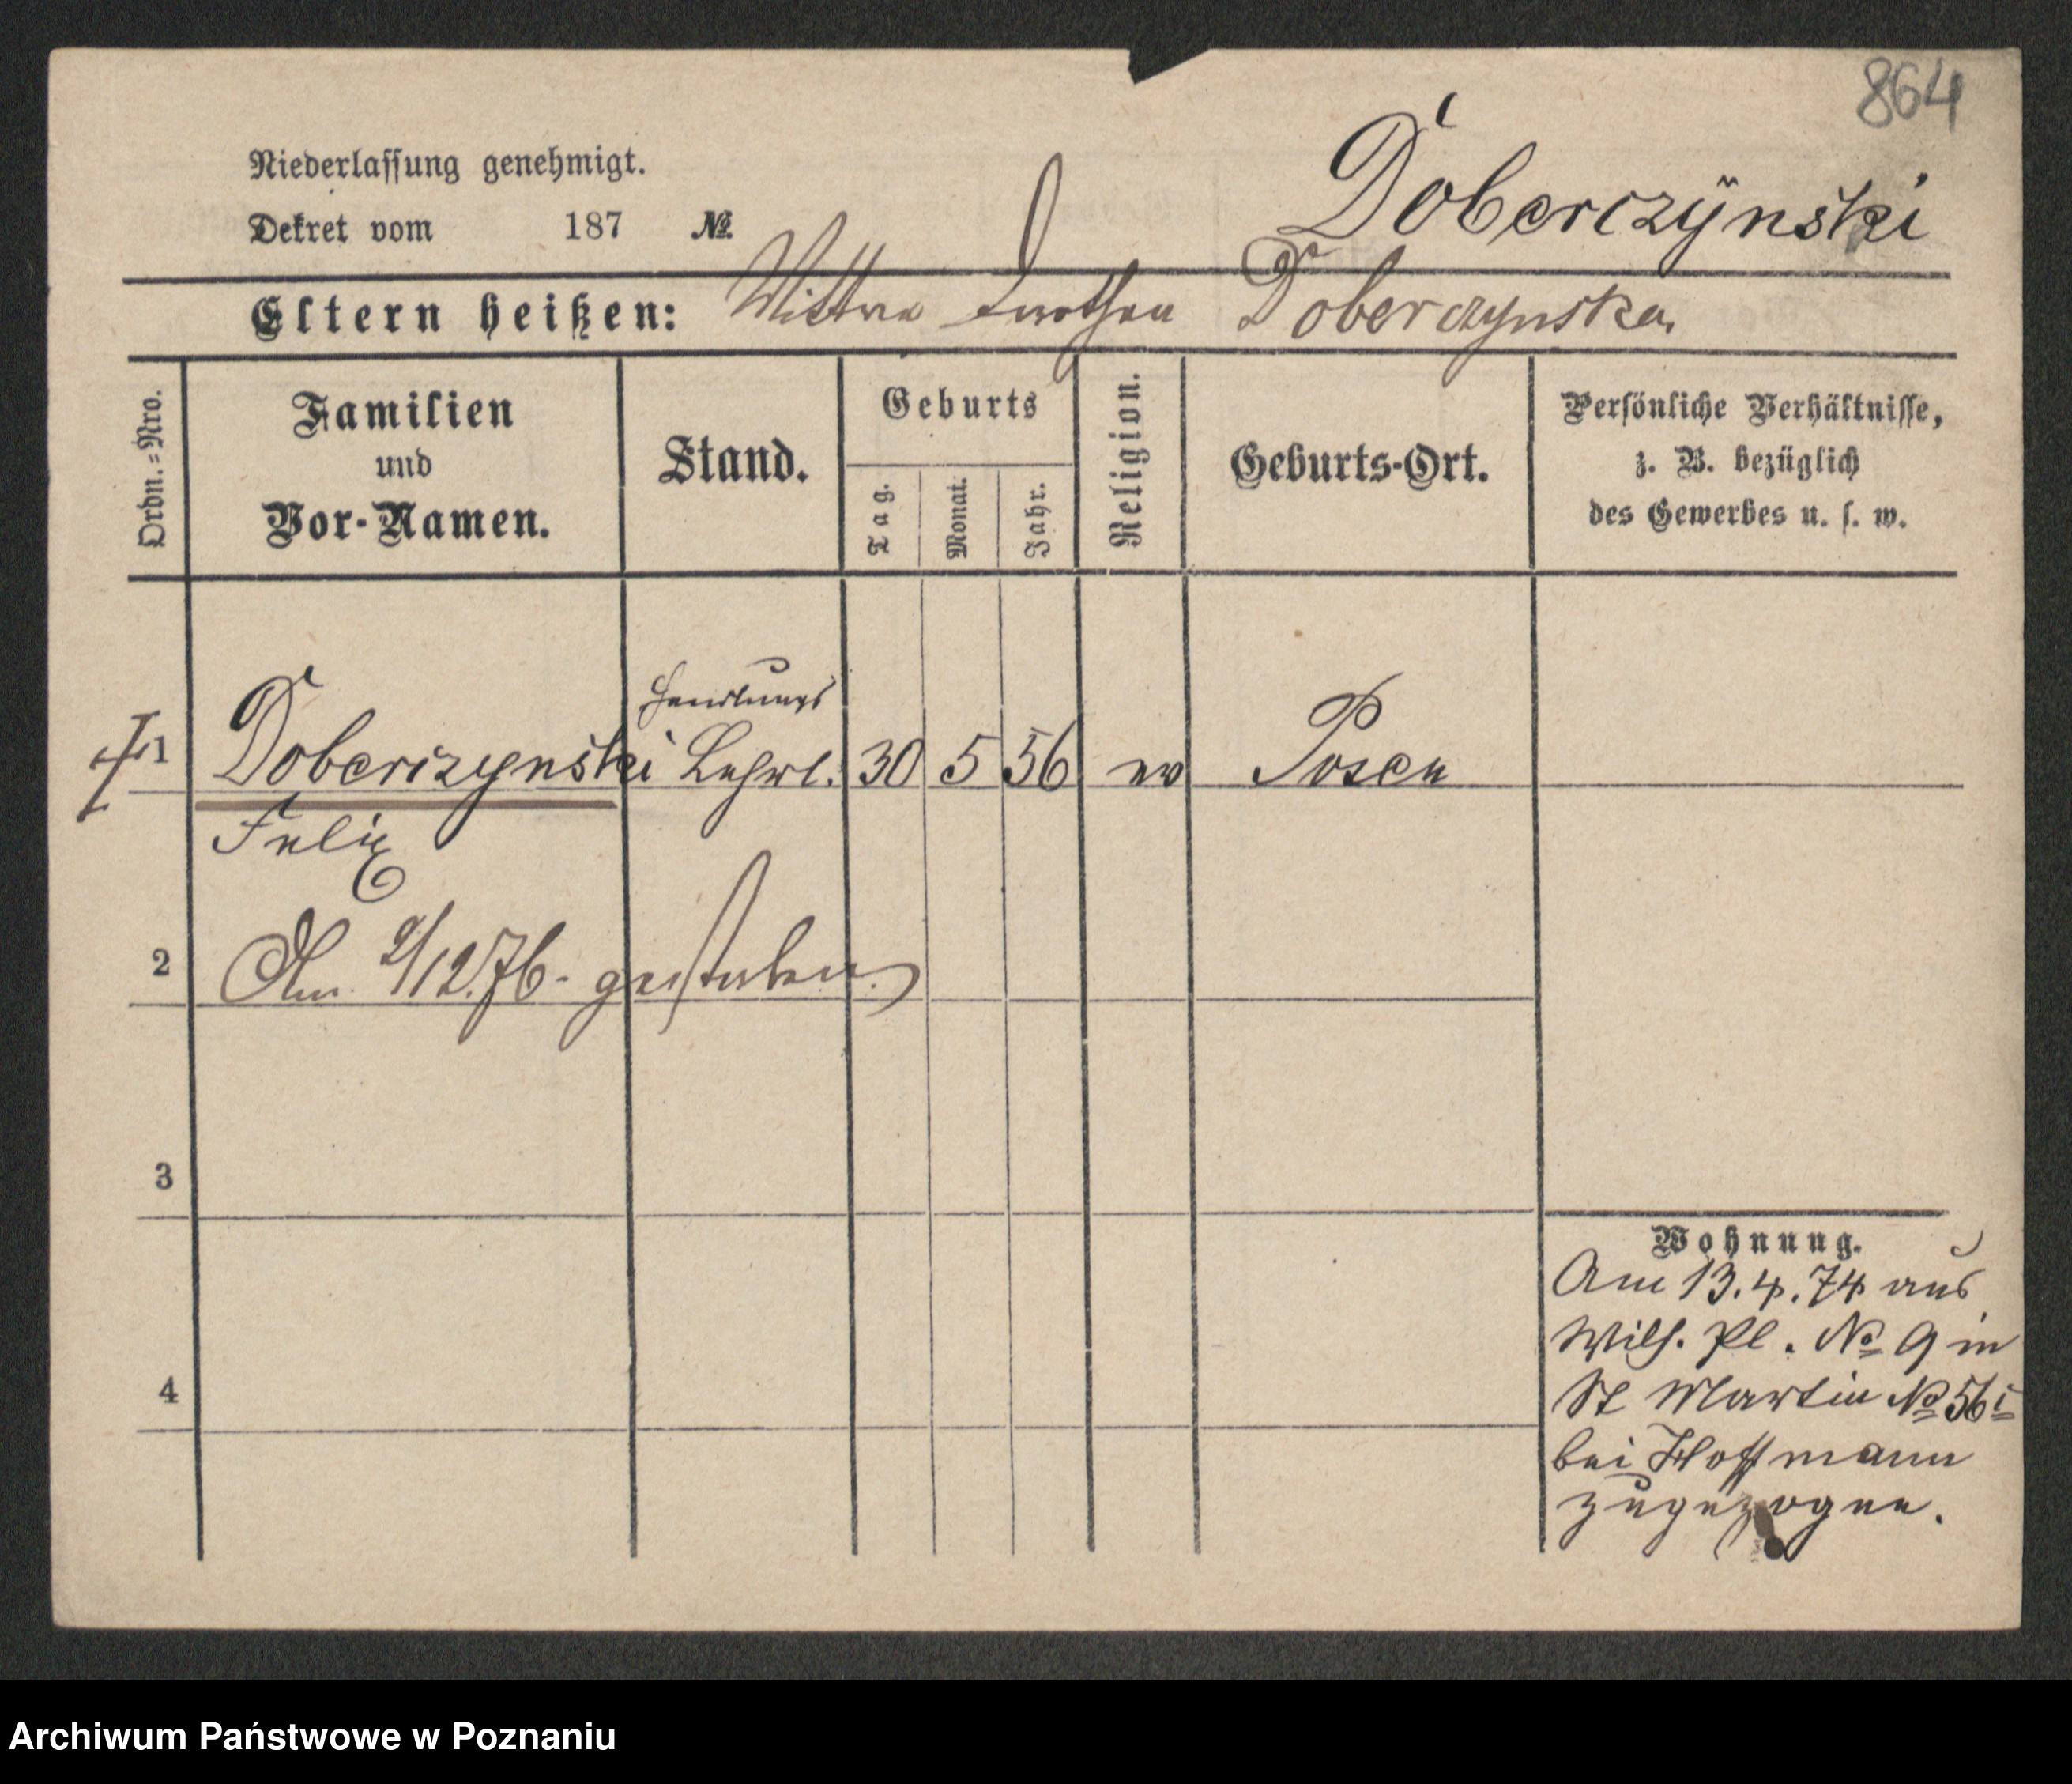 864
Niederlassung genehmigt.
Doberczÿnski
Dekret vom 187 №
Eltern heißen: Wittwe Dorothea Doberczynska
Ordn.=Nro.
Familien
und
Vor-Namen.
Stand.
Geburts
Tag.
Monat.
Jahr.
Religion.
Geburts-Ort.
Persönliche Verhältnisse,
z. B. bezüglich
des Gewerbes u. s. w.
Handlungs
1 Doberczynski Lehrl. 30 5 56 ev Posen
Felix
2 Am 2/12.76. gestorben.
3
4
Wohnung.
Am 13.4.74 aus
Wilh. Pl. № 9 in
St Martin № 56
bei Hoffmann
zugezogen.
Archiwum Państwowe w Poznaniu